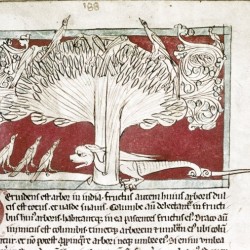 erindens est arbor in india. fructus autem huius arboris dul
cis est totus. et ualde suauis. Columbe aut delectant in fructi
bus hui arboris. habitantque in ea pascentes fructus ei. Draco aut
inimicus est columbis. timet arborem et umbram ei ubi colu
tur. et non potest appropinq arbori neq umbre ei. Si enim umbra